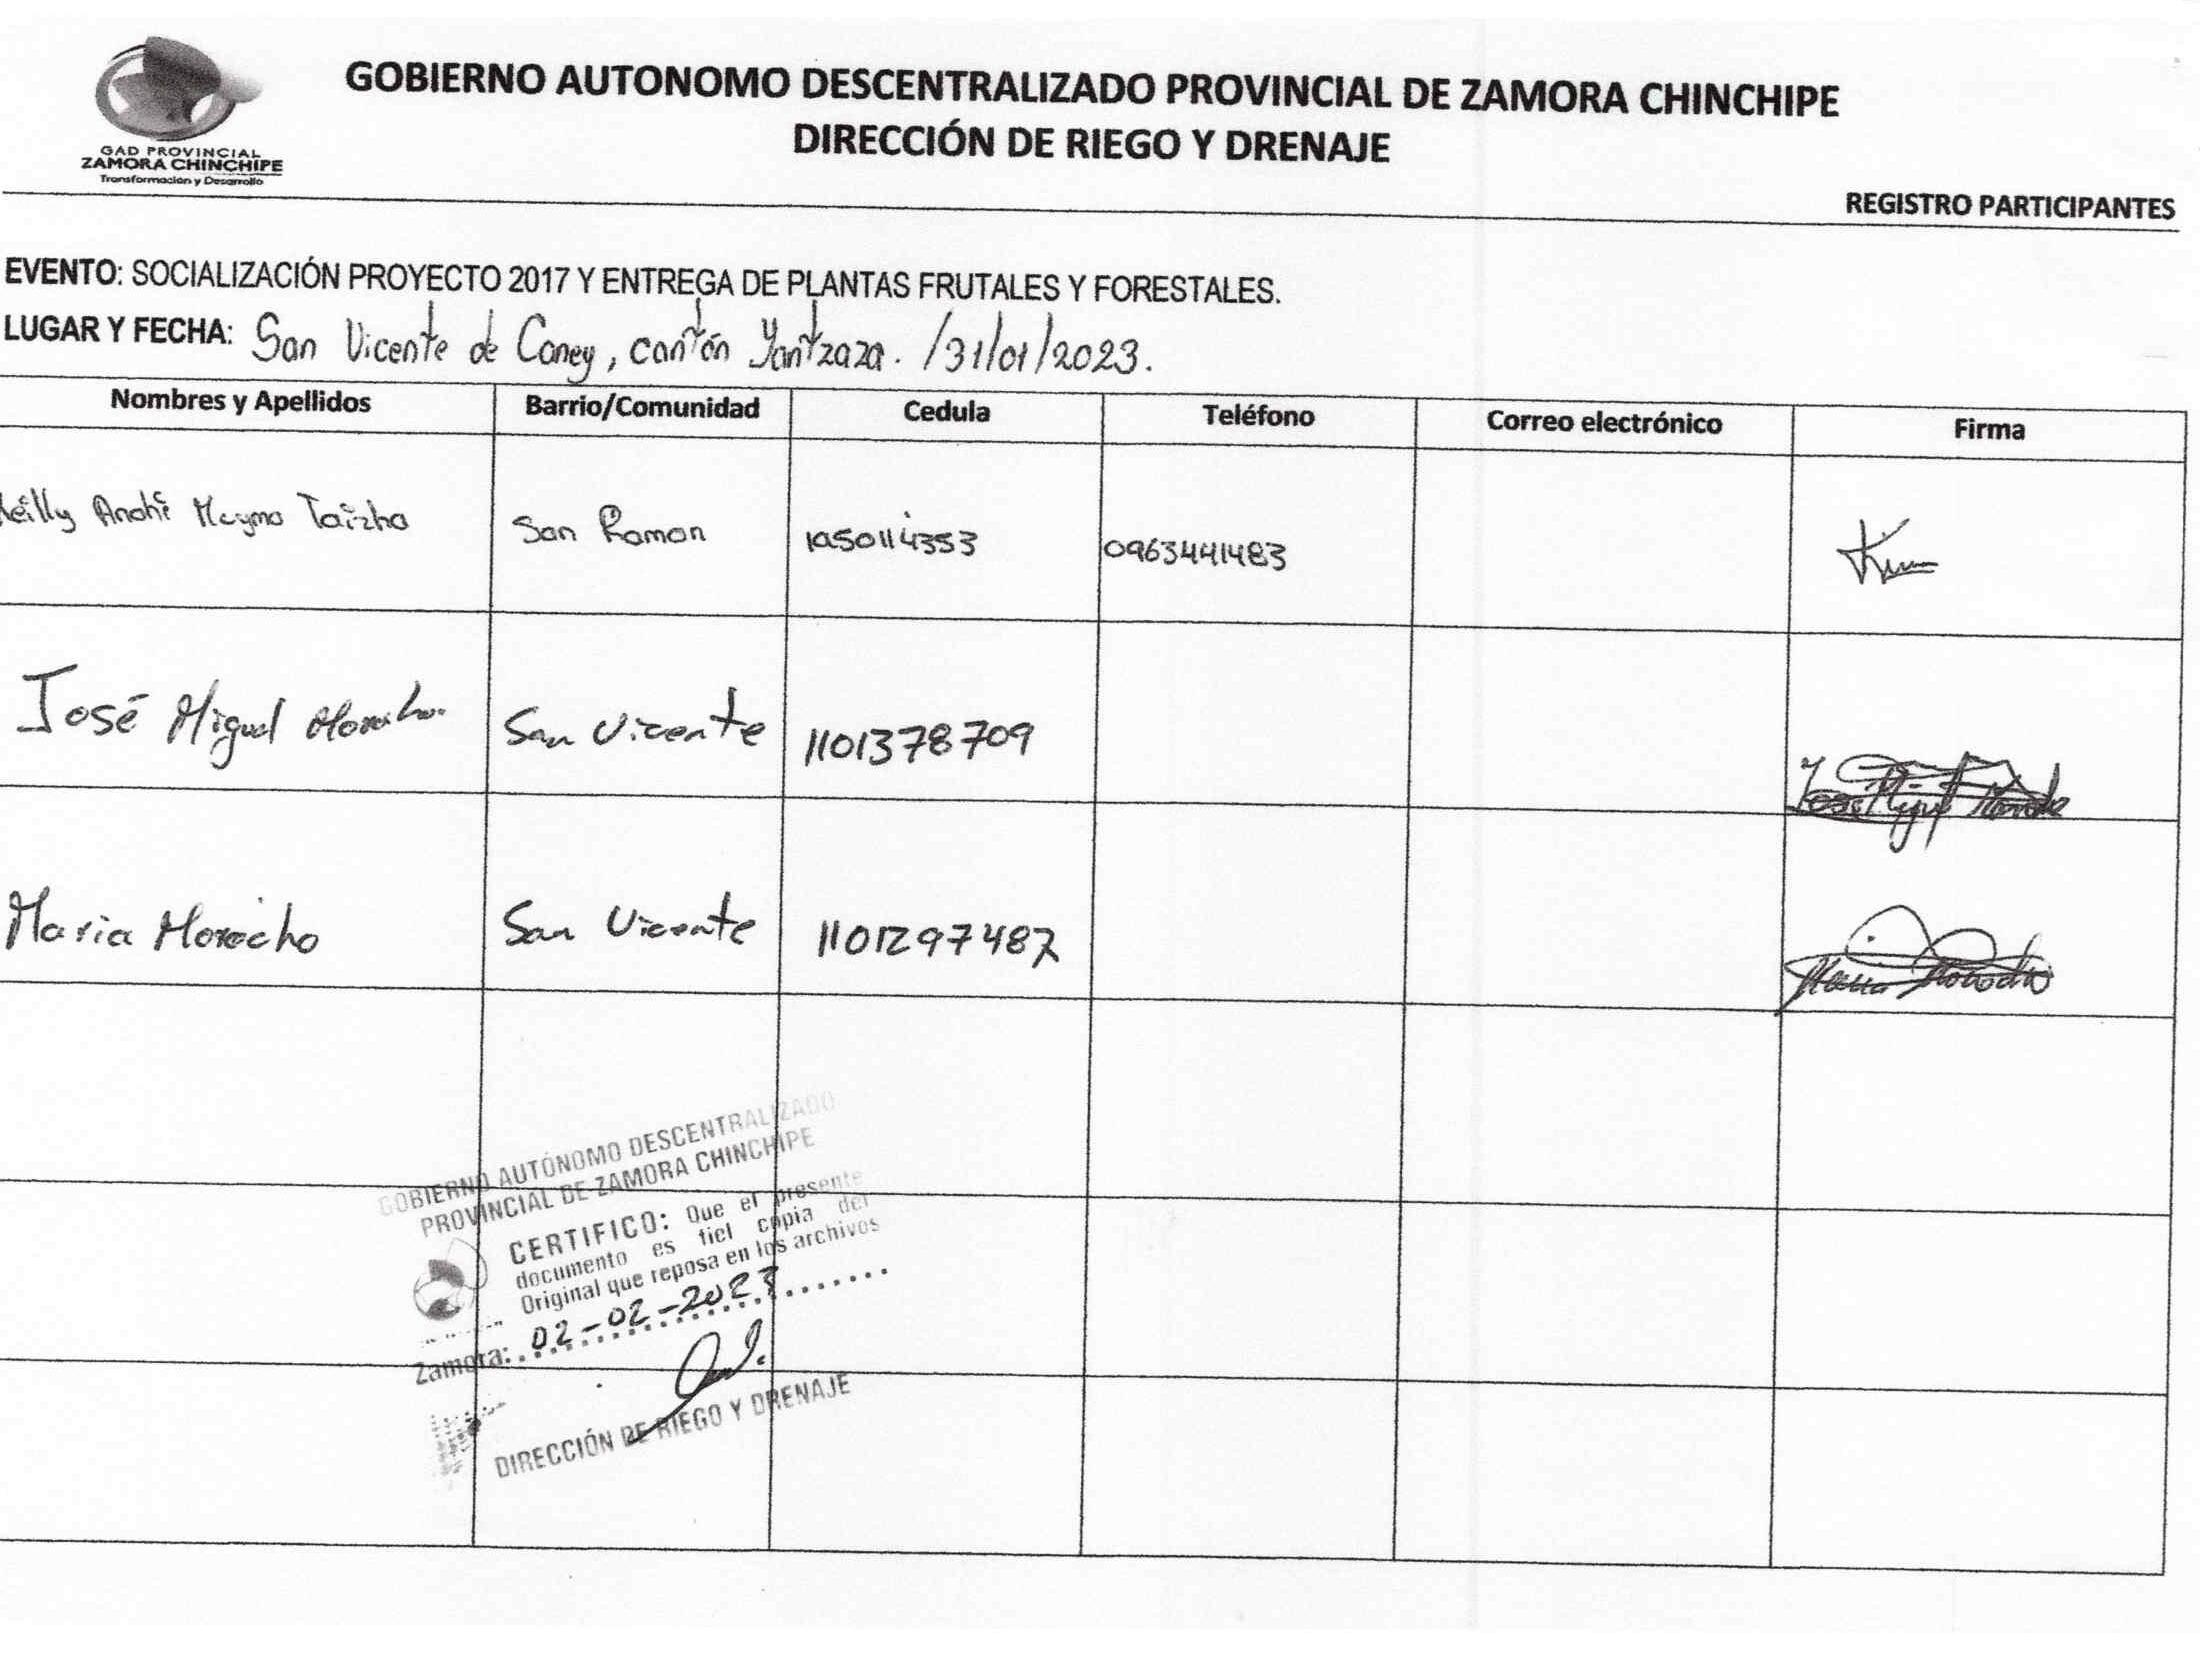 GAD PROVINCIAL
ZAMORA CHINCHIPE
Transformación y Desarrollo
GOBIERNO AUTONOMO DESCENTRALIZADO PROVINCIAL DE ZAMORA CHINCHIPE
DIRECCIÓN DE RIEGO Y DRENAJE
REGISTRO PARTICIPANTES
EVENTO: SOCIALIZACIÓN PROYECTO 2017 Y ENTREGA DE PLANTAS FRUTALES Y FORESTALES.
LUGAR Y FECHA: San Vicente de Caney, cantón Yantzaza. /31/01/2023.
Nombres y Apellidos Barrio/Comunidad Cedula Teléfono Correo electrónico Firma
San Ramon 0963441483
José Miguel Morocho San Vicente 1101378709
José Miguel Morocho
Maria Morocho San Vicente
Maria Morocho
GOBIERNO AUTÓNOMO DESCENTRALIZADO
PROVINCIAL DE ZAMORA CHINCHIPE
CERTIFICO: Que el presente
documento es fiel copia del
Original que reposa en los archivos
Zamora: 02-02-2023
DIRECCIÓN DE RIEGO Y DRENAJE